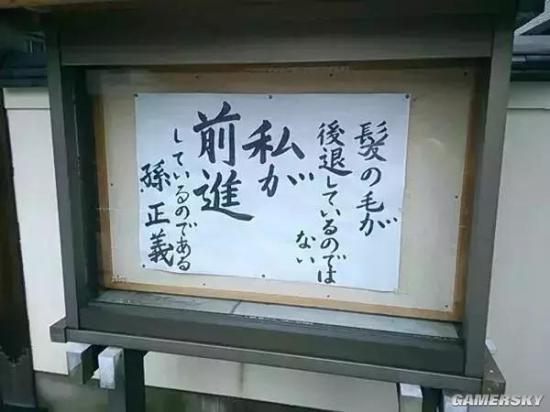 髪の毛が
後退しているのでは
ない
私が
前進
しているのである
孫正義
GAMERSKY